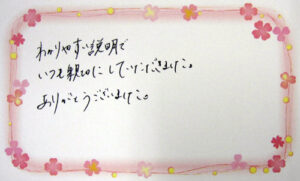 わかりやすい説明で
いつも親切にしていただきました。
ありがとうございました。